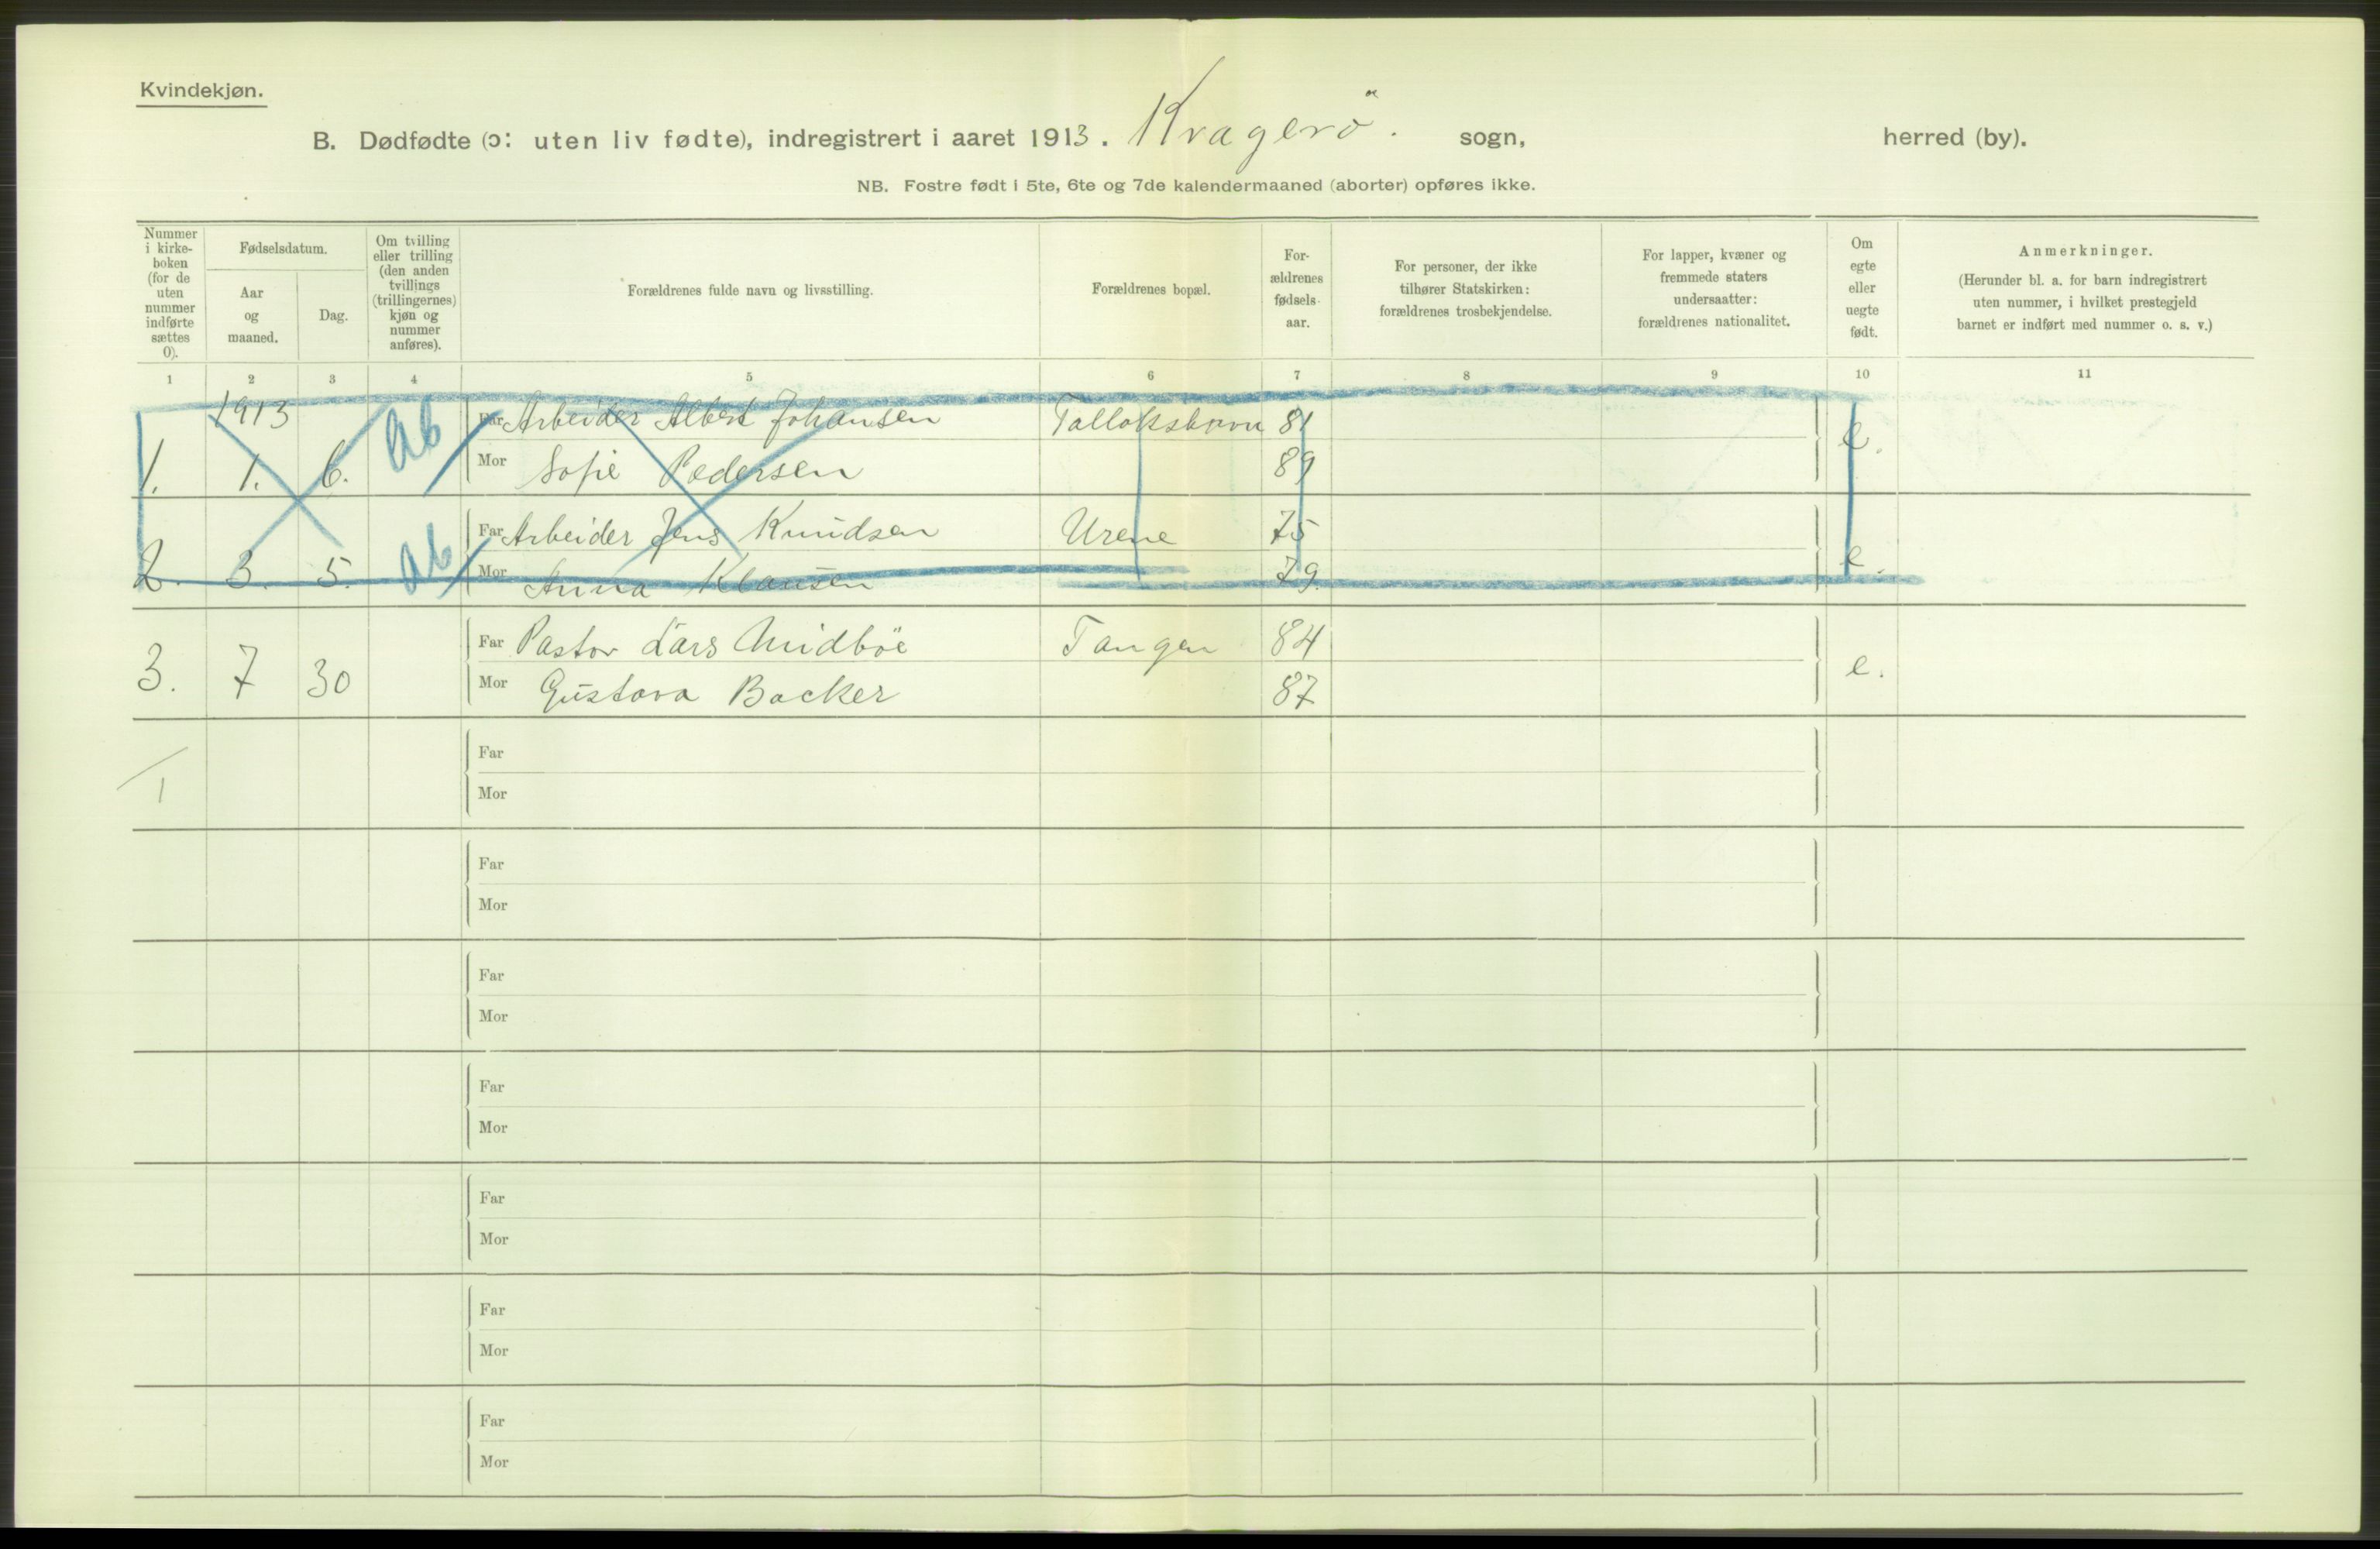 Kvindekjøn.
B. Dødfødte (ɔ: uten liv fødte), indregistrert i aaret 1913. Kragerö. sogn, herred (by).
NB. Fostre født i 5te, 6te og 7de kalendermaaned (aborter) opføres ikke.
Nummer i kirke-boken (for de uten nummer indførte sættes 0).
Fødselsdatum.
Aar og maaned.
Dag.
Om tvilling eller trilling (den anden tvillings (trillingernes) kjøn og nummer anføres).
Forældrenes fulde navn og livsstilling.
Forældrenes bopæl.
For-ældrenes fødsels-aar.
For personer, der ikke tilhører Statskirken: forældrenes trosbekjendelse.
For lapper, kvæner og fremmede staters undersaatter: forældrenes nationalitet.
Om egte eller uegte født.
Anmerkninger.
(Herunder bl. a. for barn indregistrert uten nummer, i hvilket prestegjeld barnet er indført med nummer o. s. v.)
1 2 3 4 5 6 7 8 9 10 11
1913
Far Arbeider Albert Johansen 81
1. 1. 6. Ab Mor Sofie Pedersen 89 e.
Far Arbeider Jens Knudsen Urene 75
2. 3. 5. Ab Mor Anna Klausen 79. e.
Far Pastor Lars Midböe Tangen 84
3. 7 30 Mor Gustava Backer 87 e.
Far
1 Mor
Far
Mor
Far
Mor
Far
Mor
Far
Mor
Far
Mor
Far
Mor